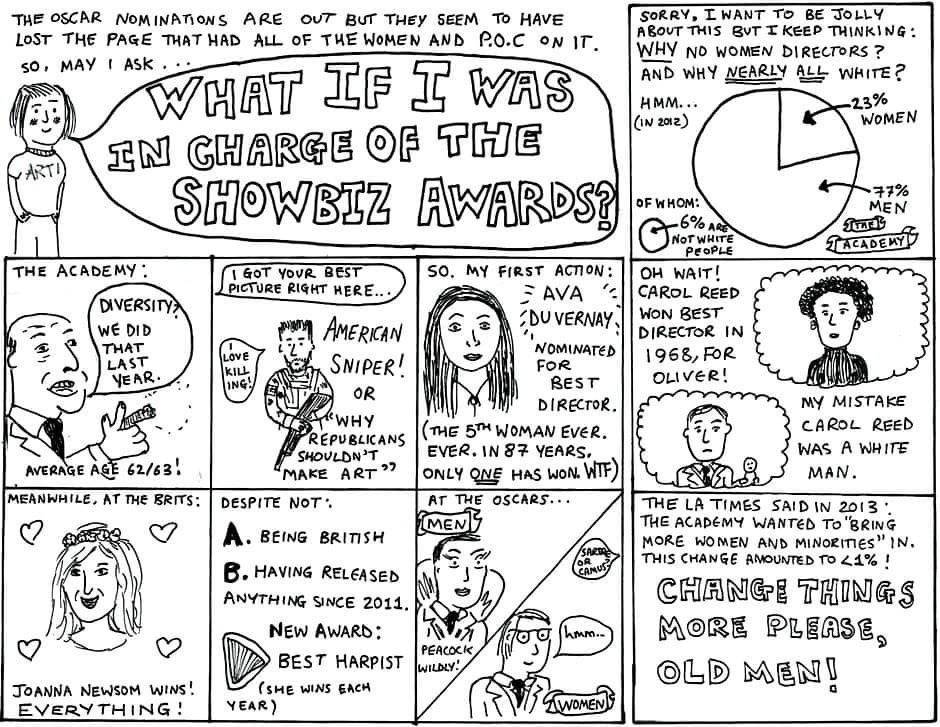 THE OSCAR NOMINATIONS ARE OUT BUT THEY SEEM TO HAVE
LOST THE PAGE THAT HAD ALL OF THE WOMEN AND P.O.C ON IT.
SO, MAY I ASK...
WHAT IF I WAS
IN CHARGE OF THE
SHOWBIZ AWARDS?
ART!
SORRY, I WANT TO BE JOLLY
ABOUT THIS BUT I KEEP THINKING:
WHY NO WOMEN DIRECTORS?
AND WHY NEARLY ALL WHITE?
HMM...
(IN 2012)
23%
WOMEN
77%
MEN
OF WHOM:
6% ARE
NOT WHITE
PEOPLE
THE
ACADEMY
THE ACADEMY:
DIVERSITY?
WE DID
THAT
LAST
YEAR.
AVERAGE AGE 62/63!
I GOT YOUR BEST
PICTURE RIGHT HERE...
I
LOVE
KILL
ING!
AMERICAN
SNIPER!
OR
"WHY
REPUBLICANS
SHOULDN'T
MAKE ART"
SO, MY FIRST ACTION:
AVA
DU VERNAY,
NOMINATED
FOR
BEST
DIRECTOR.
(THE 5TH WOMAN EVER.
EVER. IN 87 YEARS.
ONLY ONE HAS WON. WTF)
OH WAIT!
CAROL REED
WON BEST
DIRECTOR IN
1968, FOR
OLIVER!
MY MISTAKE
CAROL REED
WAS A WHITE
MAN.
MEANWHILE, AT THE BRITS:
JOANNA NEWSOM WINS!
EVERYTHING!
DESPITE NOT:
A. BEING BRITISH
B. HAVING RELEASED
ANYTHING SINCE 2011.
NEW AWARD:
BEST HARPIST
(SHE WINS EACH
YEAR)
AT THE OSCARS...
MEN
PEACOCK
WILDLY!
SARTRE
OR
CAMUS?
hmm..
WOMEN
THE LA TIMES SAID IN 2013:
THE ACADEMY WANTED TO "BRING
MORE WOMEN AND MINORITIES" IN.
THIS CHANGE AMOUNTED TO <1%!
CHANGE THINGS
MORE PLEASE,
OLD MEN!